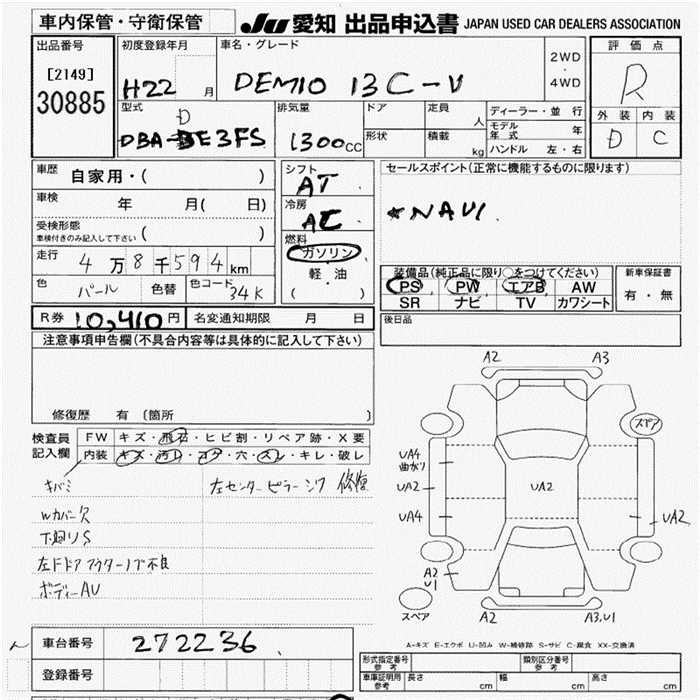 車内保管・守衛保管
JU 愛知 出品申込書 JAPAN USED CAR DEALERS ASSOCIATION
出品番号
[2149]
30885
初度登録年月
H22 月
車名・グレード
DEMIO 13C-V
2WD
・
4WD
評価点
R
外装 内装
D C
型式
D
DBA-DE3FS
排気量
1300cc
ドア
形状
定員
人
積載
kg
ディーラー・並行
モデル年式 年
ハンドル 左・右
車歴
自家用・( )
車検
年 月( 日)
受検形態
車検付きのみ記入して下さい ( )
走行
4万8千594km
色
パール
色替
色コード
34K
シフト
AT
冷房
AC
燃料
ガソリン
・
軽・油
( )
セールスポイント(正常に機能するものに限ります)
★NAVI
装備品(純正品に限り○をつけてください)
PS PW エアB AW
SR ナビ TV カワシート
新車保証書
有・無
R券 10,410円
名変通知期限 月 日
後日品
注意事項申告欄(不具合内容等は具体的に記入して下さい)
修復歴 有 〔箇所 〕
検査員
記入欄
FW キズ・飛石・ヒビ割・リペア跡・X要
内装 キズ・汚レ・コゲ・穴・スレ・キレ・破レ
キバミ
左センターピラーシワ 修復
Wカバー欠
下廻りS
左FドアアウターノブA不良
ボディーAU
A2 A3
スペア
UA4
曲がり
UA2
UA4
UA2
UA2
A2
U1
スペア
A2 A3.U1
A-キズ E-エクボ U-凹み W-補修跡 S-サビ C-腐食 XX-交換済
車台番号 272236
登録番号
形式指定番号
参考
類別区分番号
参考
車庫証明用
参考
長さ cm
幅 cm
高さ cm